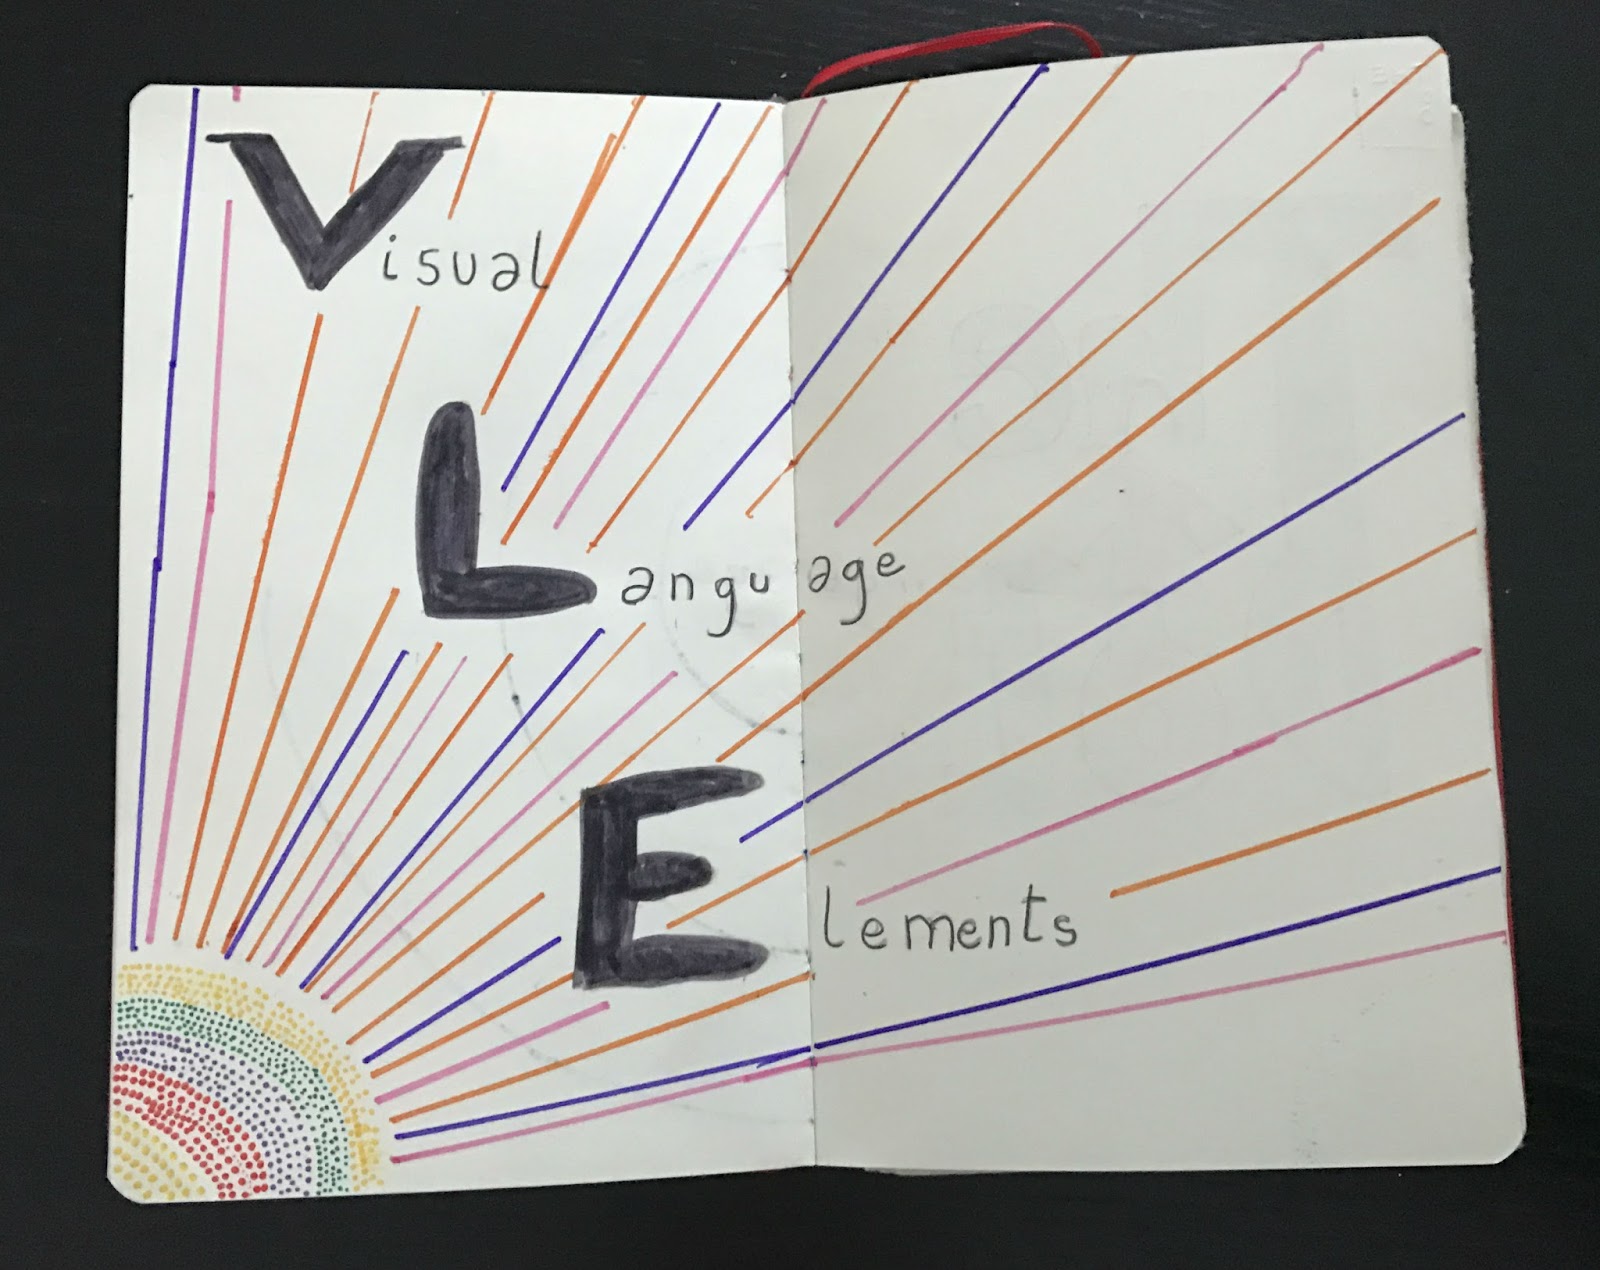 Visual
Language
Elements